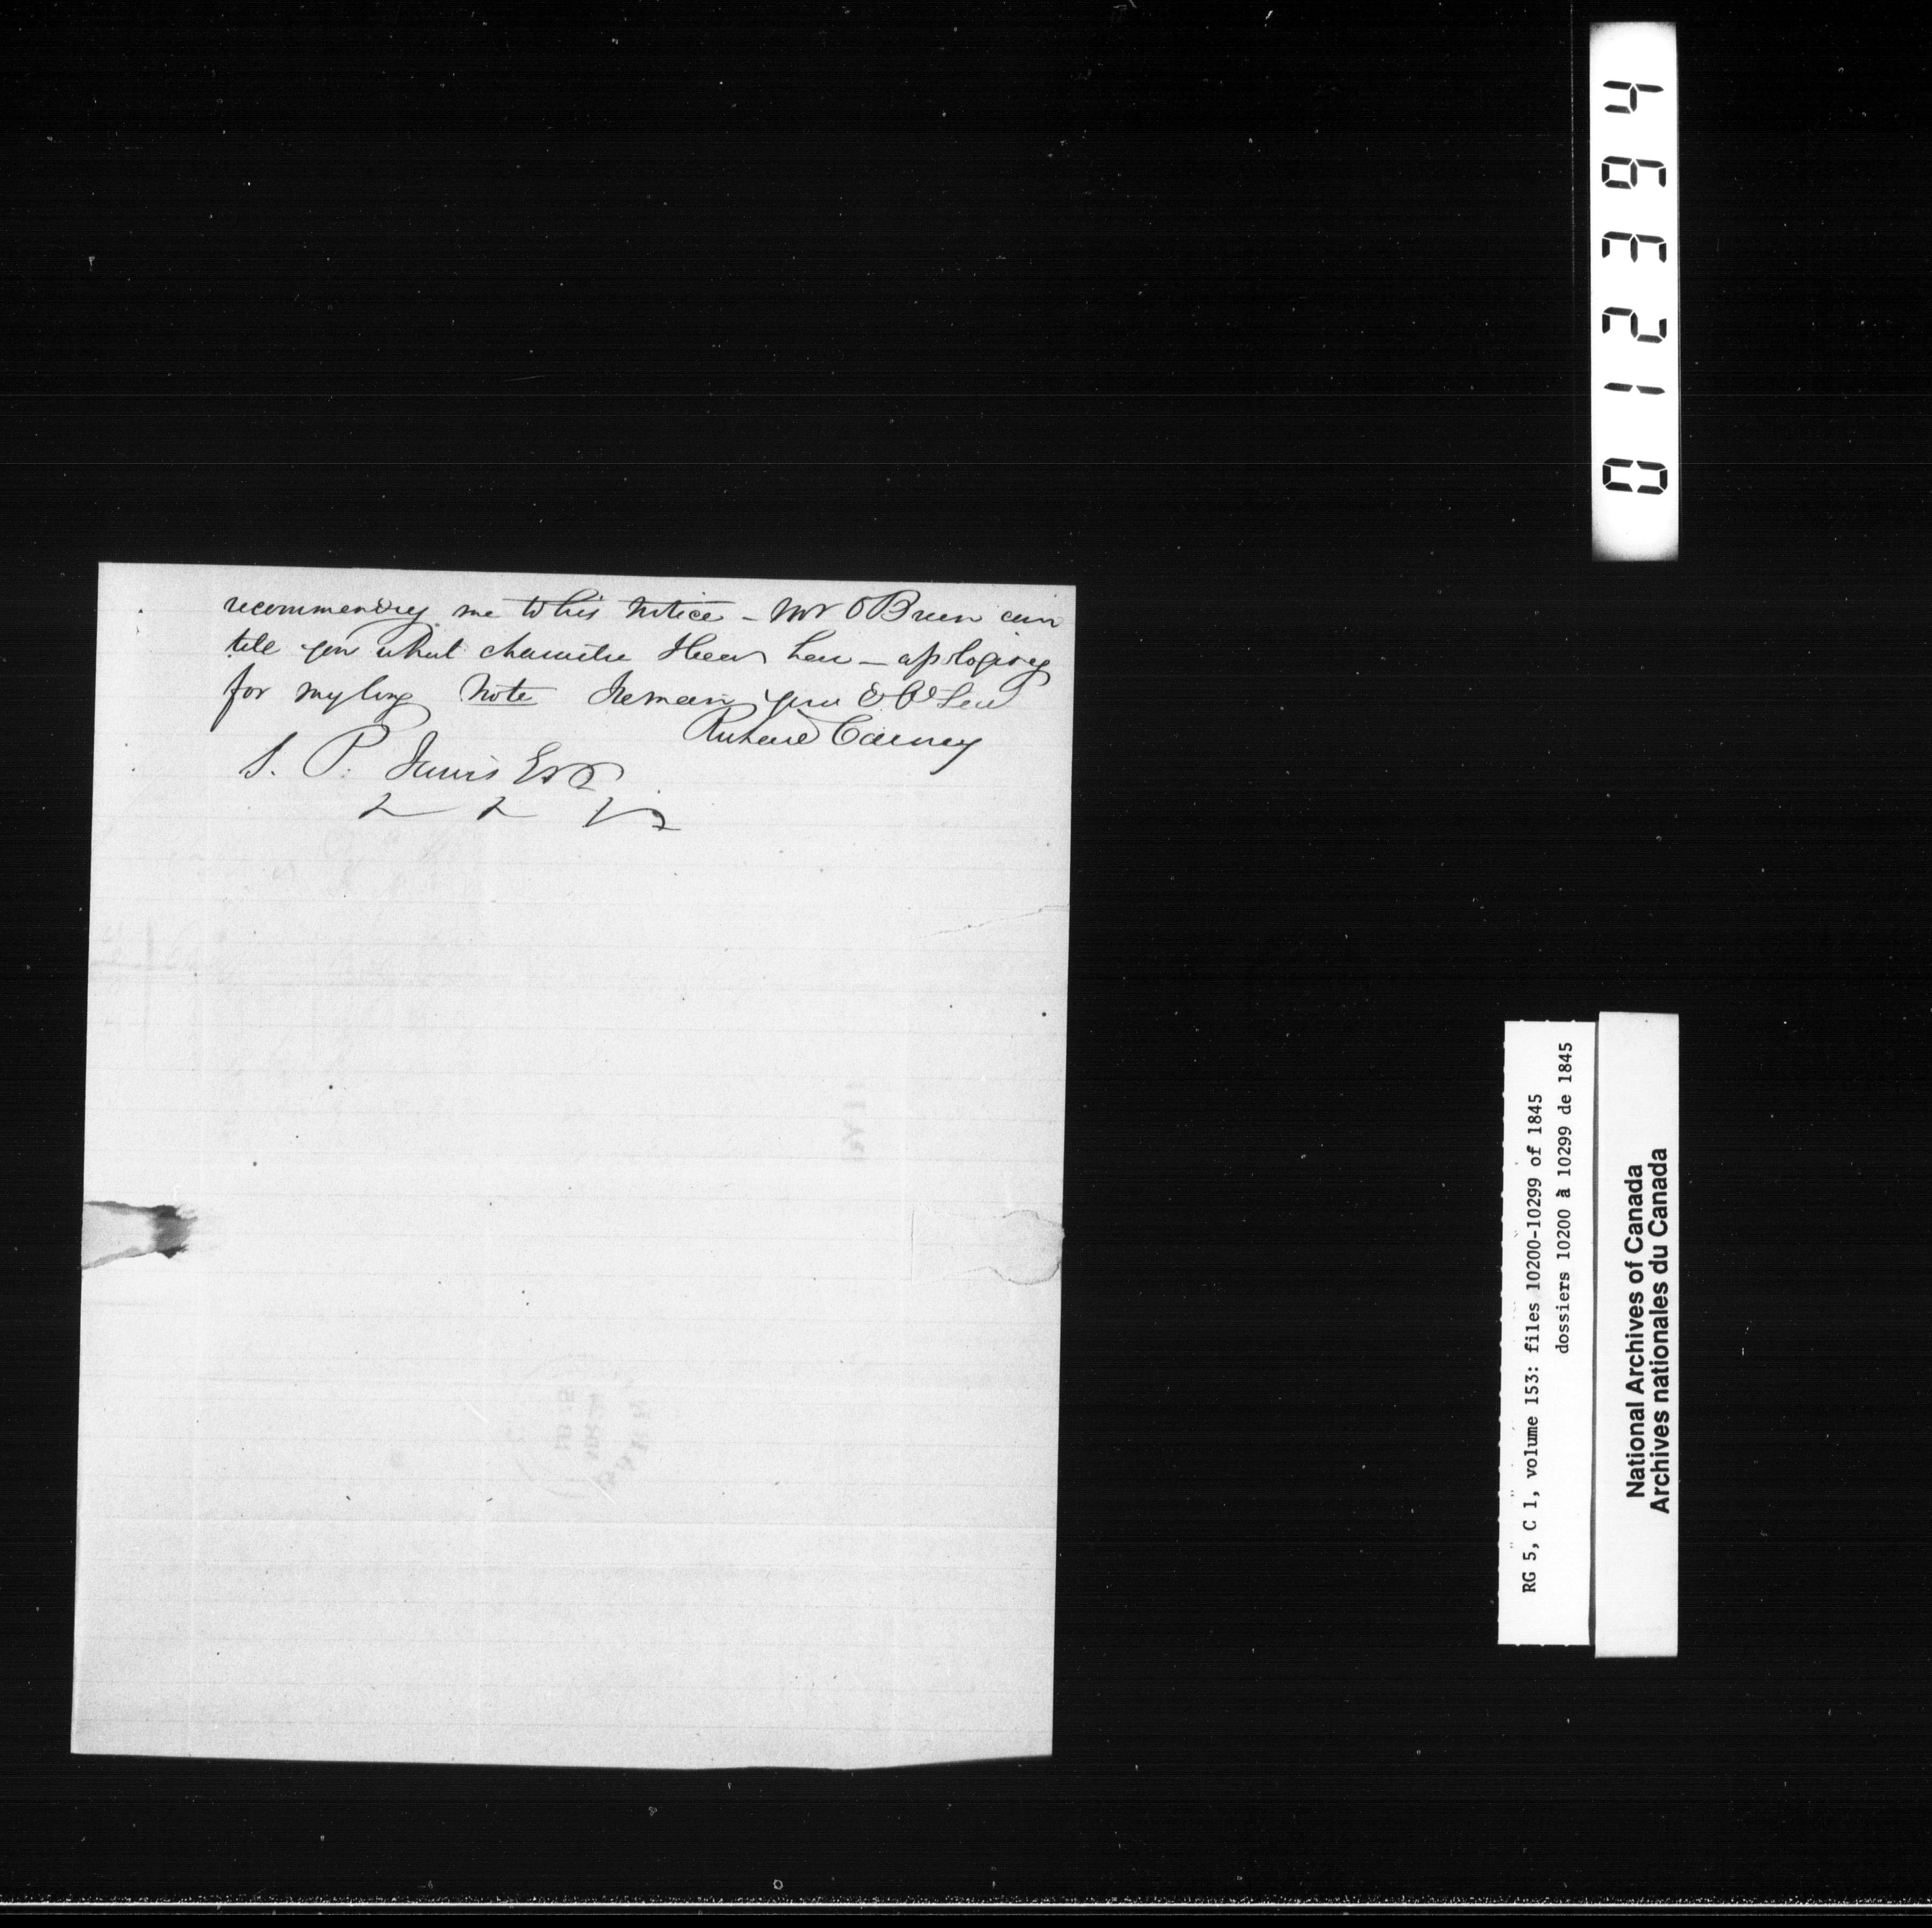 recommending me to his notice - Mr OBrien can
tell you what character I bear here - apologising
for my long note I remain your Obt Sert
Richard Carney
S. P. Jarvis Esqr
012394
RG 5, C 1, volume 153: files 10200-10299 of 1845
dossiers 10200 à 10299 de 1845
National Archives of Canada
Archives nationales du Canada